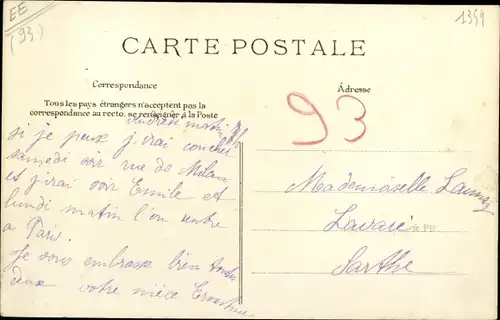 EE
(93)
1354
CARTE POSTALE
Correspondance
Adresse
Tous les pays étrangers n'acceptent pas la
correspondance au recto, se renseigner à la Poste
vendredi matin
si je peux j'irai coucher
samedi soir rue de Milan
et j'irai voir Emile et
lundi matin l'on rentre
a Paris.
Je vous embrasse bien toutes
deux votre nièce
93
Mademoiselle Launay
Lavaré
Sarthe